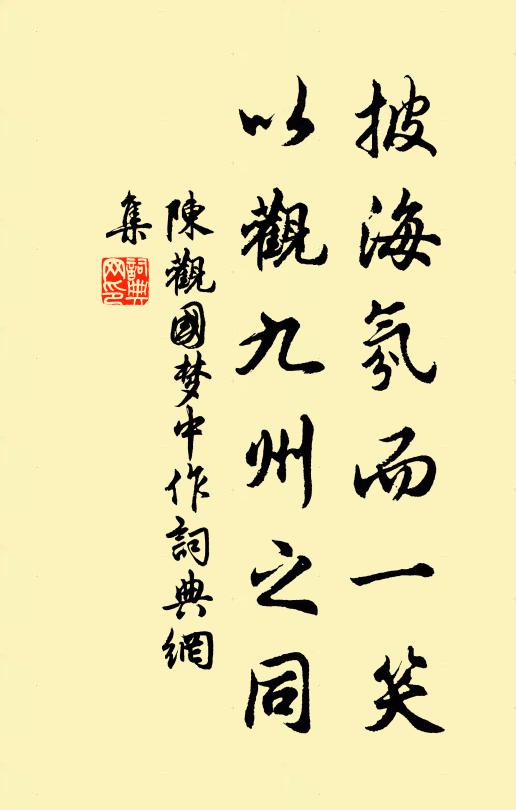 披海氛而一笑
以觀九州之同
陳觀國梦中作詞典網
集
詞典
网印